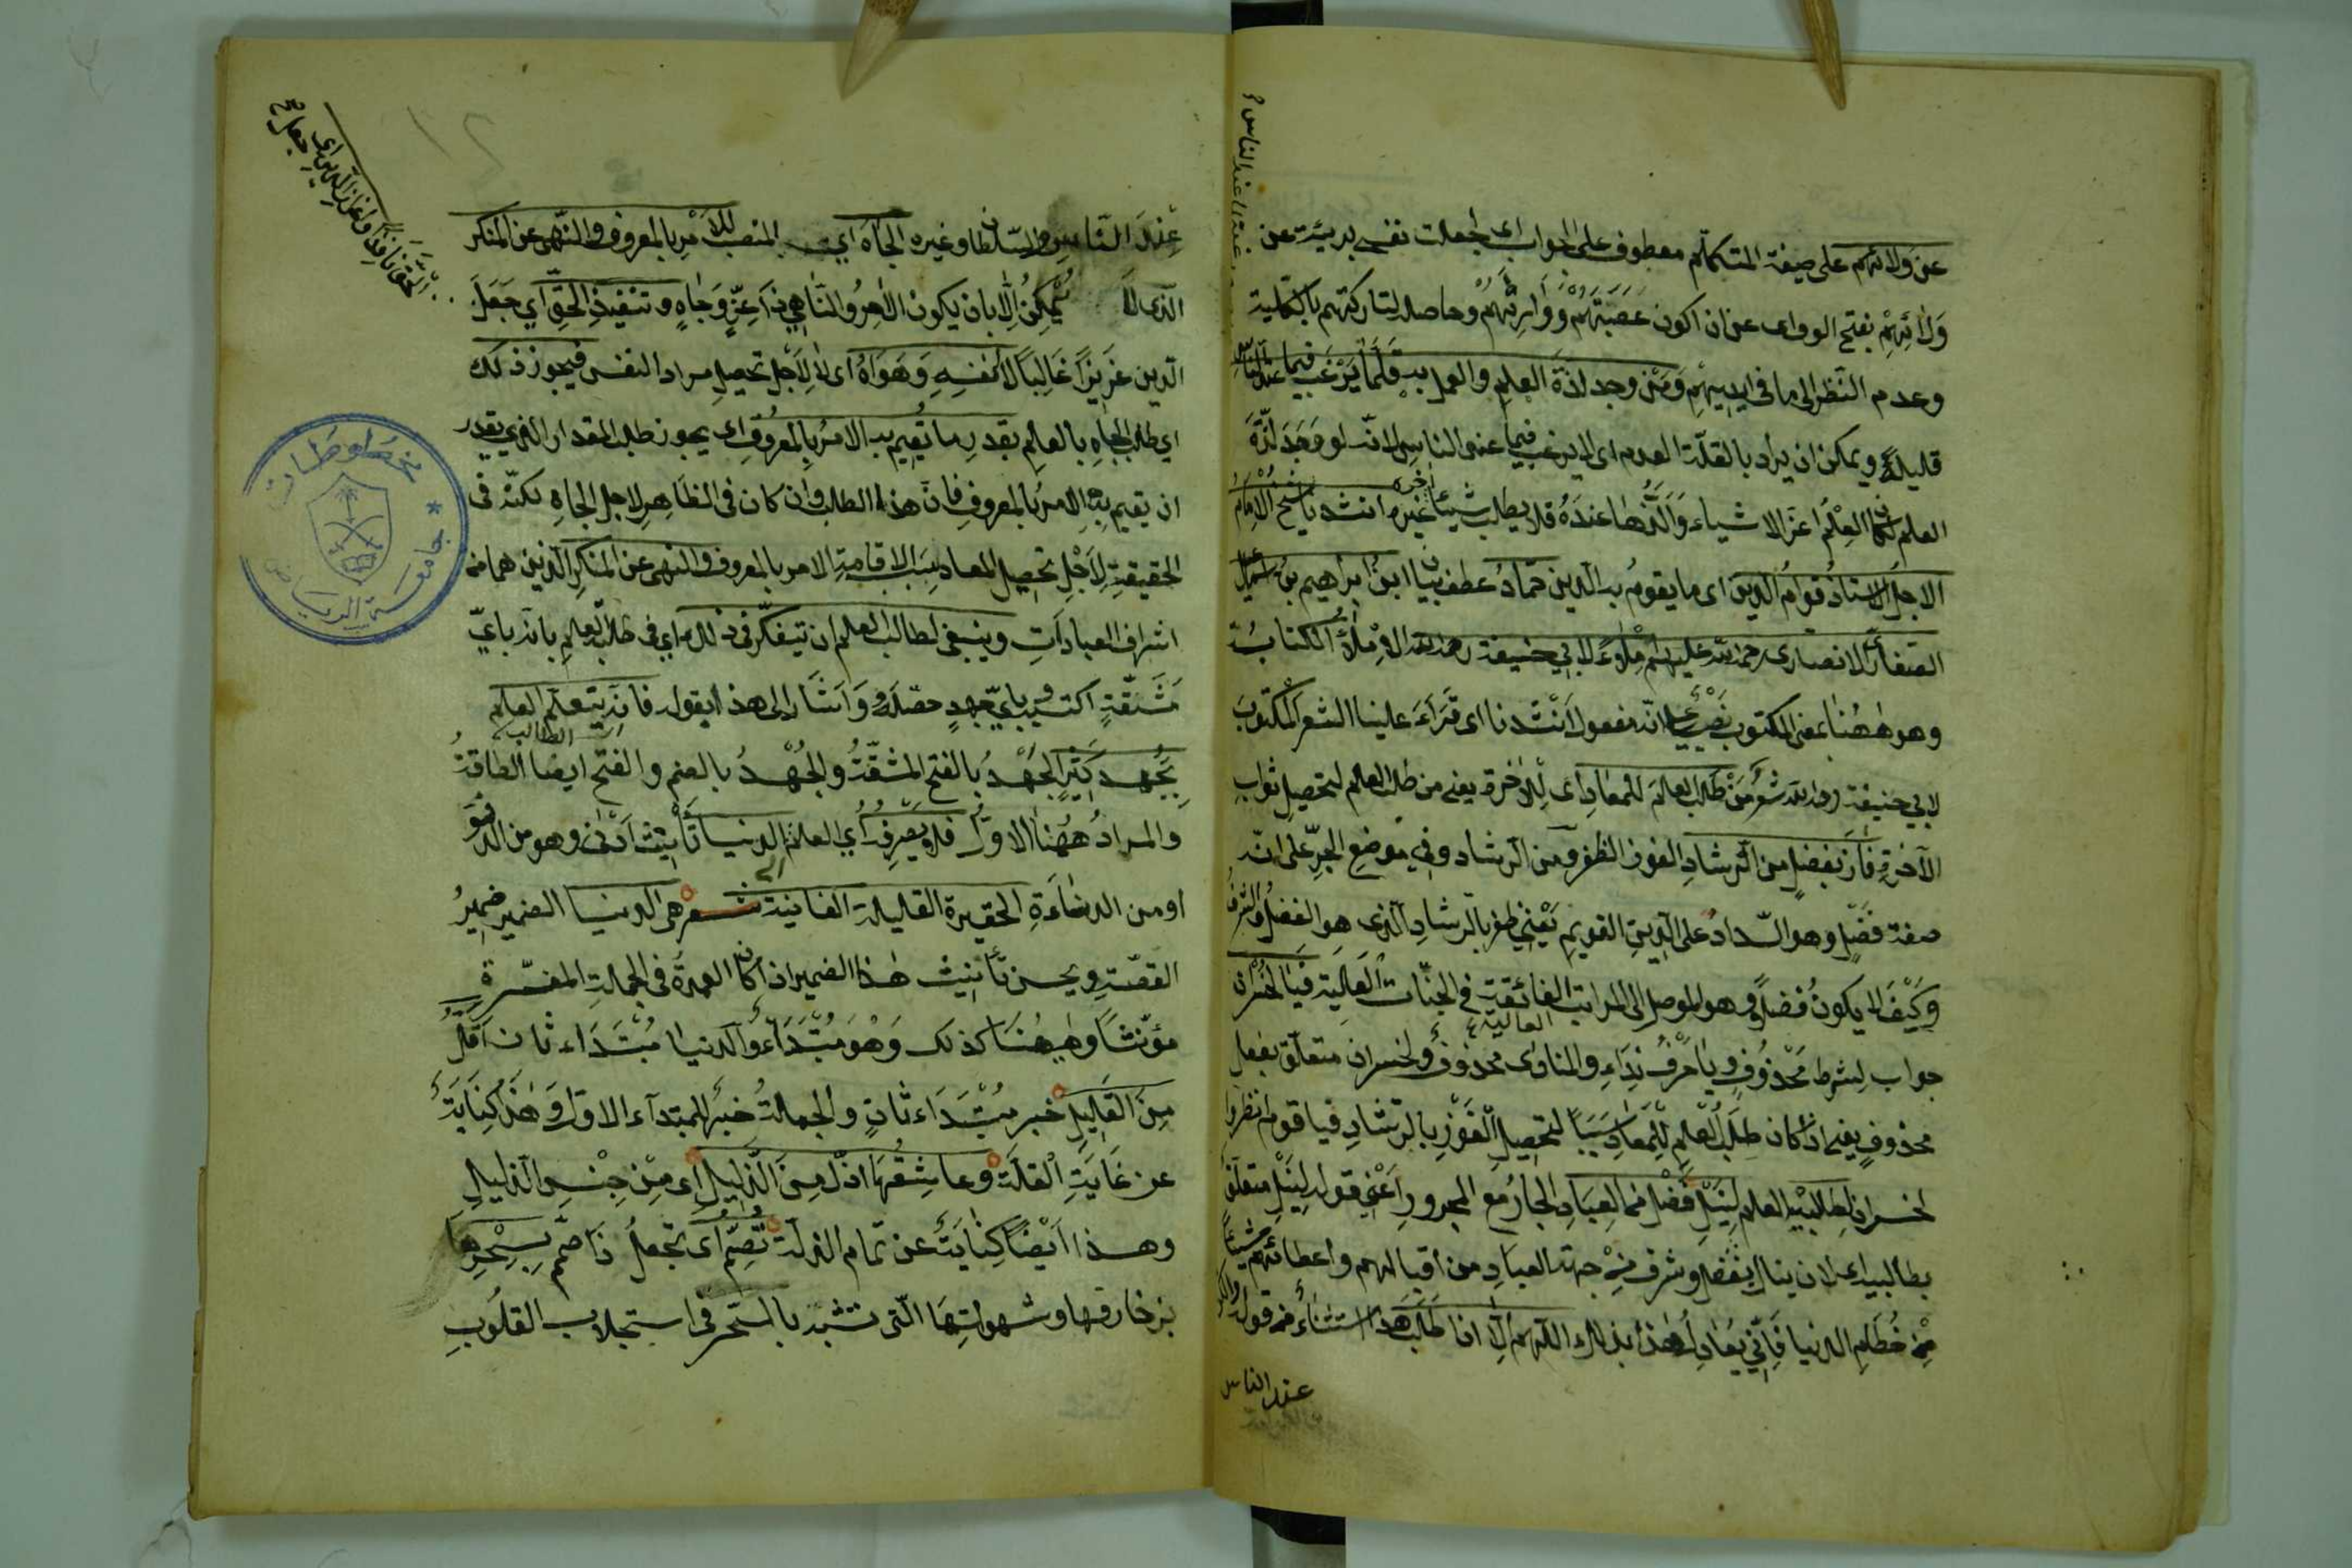 عن ولائهم على صيغة المتكلم معطوف على الجواب اى لجعلت نفسى بريئة عن
ولائهم بفتح الواو اى عن ان اكون عصبتهم ووارثهم وحاصله لتاركتهم بالكلية
وعدم النظر الى ما فى ايديهم ومن وجد لذة العلم والعمل به قلما يرغب فيما عند الناس
قليلة ويمكن ان يراد بالقلة العدم اى لا يرغب فيما عند الناس لانه لو وجد لذة
العلم كان العلم اعز الاشياء والذها عنده فلا يطلب شيئا غيره انشدنا الشيخ الامام
الاجل الاستاذ قوام الدين اى ما يقوم به الدين حماد عطف بيان ابن ابراهيم بن اسمعيل
الصفار الانصارى رحمة الله عليهم املاء لابي حنيفة رحمه الله الاملاء الكتابة
وهو ههنا بمعنى المكتوب نصب على انه مفعول انشدنا اى قراءَ علينا الشعر المكتوب
لابي حنيفة رحمه الله شعر من طلب العلم للمعاد اى للاخرة يعنى من طلب العلم لتحصيل ثواب
الآخرة فاز بفضل من الرشاد الفوز الظفر ومن الرشاد وفي موضع الجر على انه
صفة فضل وهو السداد على الدين القويم يعني ظفر بالرشاد الذى هو الفضل والشرف
وكيف لا يكون فضلا وهو الموصل الى المراتب الفائقة في الجنات العالية فيا لخسران
العالية
جواب لشرط محذوف ويا حرف نداء والمنادى محذوف ولخسران متعلق بفعل
محذوف يعنى اذا كان طلب العلم للمعاد سببا لتحصيل الفوز بالرشاد فيا قوم انظروا
لخسران لطالبيه العلم لنيل فضل من العباد الجار مع المجرور اعني قوله لنيل متعلق
بطالبيه اى لان ينال بفضل وشرف من جهة العباد من اقبالهم واعطائهم شيئا
من حطام الدنيا فاني يعادل هذا بذلك اللهم الا اذا طلب هذا استثناء من قوله
عند الناس
عند الناس والسلطان وغيره الجاه اي المنصب للامر بالمعروف والنهى عن المنكر
الذى لا يمكن الا بان يكون الامر والناهي ذا عز وجاه وتنفيذ الحق اي جعل
الدين عزيزا غالبا لا لنفسه وهواه اى لا لاجل تحصيل مراد النفس فيجوز ذلك
اي طلب الجاه بالعلم بقدر ما يقيم به الامر بالمعروف اى يجوز طلب المقدار الذي يقدر
ان يقيم به الامر بالمعروف فان هذا الطلب وان كان فى الظاهر لاجل الجاه لكنه فى
الحقيقة لاجل تحصيل المعاد بسبب الاقامة الامر بالمعروف والنهى عن المنكر الذين هما من
اشراف العبادات وينبغى لطالب العلم ان يتفكر فى ذلك اي فى طلب العلم بانه باي
مشقة اكتسبه وباي جهد حصله واشار الى هذا بقوله فانه يتعلم العلم
اى الطالب
بجهد كثير الجهد بالفتح المشقة والجهد بالضم والفتح ايضا الطاقة
والمراد ههنا الاول فلا يصرفه اي العلم الى الدنيا تأنيث ادنى وهو من الدنو
او من الدناءة الحقيرة القليلة الفانية شعر هى الدنيا الضمير ضمير
القصة ويحسن تأنيث هذا الضمير اذا كان العمدة فى الجملة المفسرة
مؤنثا وههنا كذلك وهو مبتداء والدنيا مبتداء ثان اقل
من القليل خبر مبتداء ثان والجملة خبر للمبتداء الاول وهذا كناية
عن غاية القلة وعاشقها اذل من الذليل اى من جنس الذليل
وهذا ايضا كناية عن تمام الذلة تصم اى تجعل ذا صمم بسحرها
بزخارفها وشهواتها التى تشبه بالسحر فى استجلاب القلوب
مخطوطات
جامعة الرياض